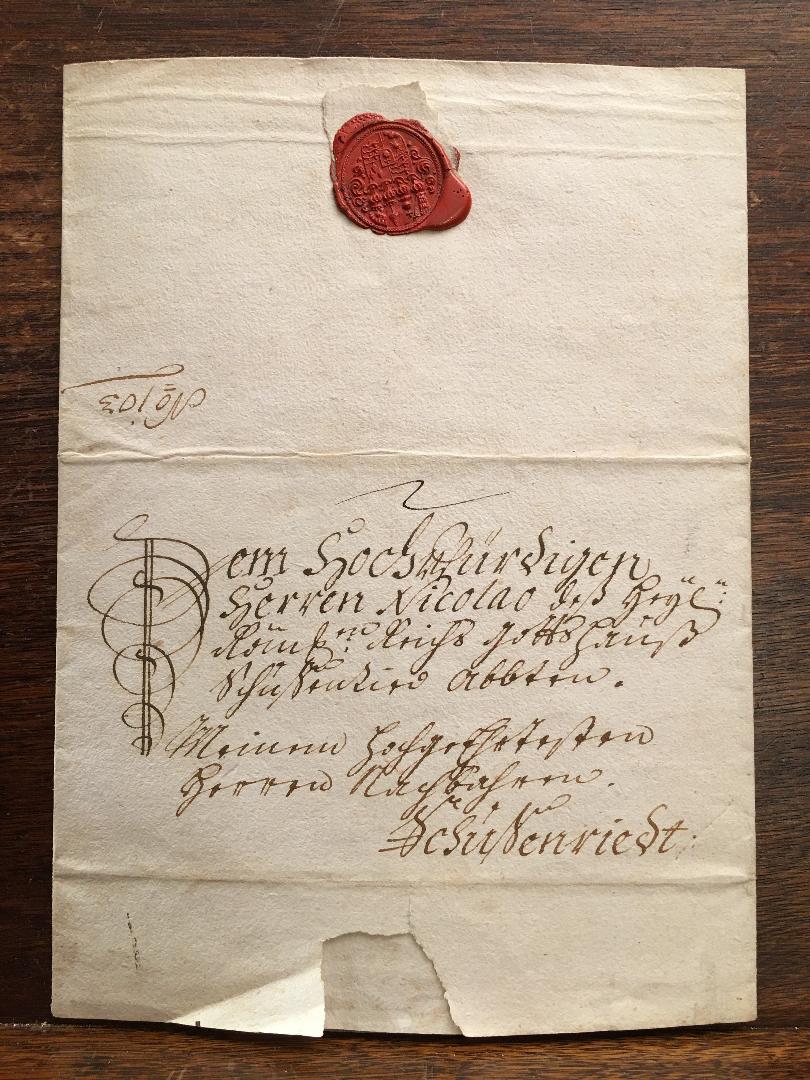 No 103
Dem HochWürdigen
Herren Nicolao deß Heyl:
Röm: Reichs Gottshauß
Schußenried Abbten.
Meinem Hochgeehrtesten
Herren Nachbahren.
Schußenriedt.